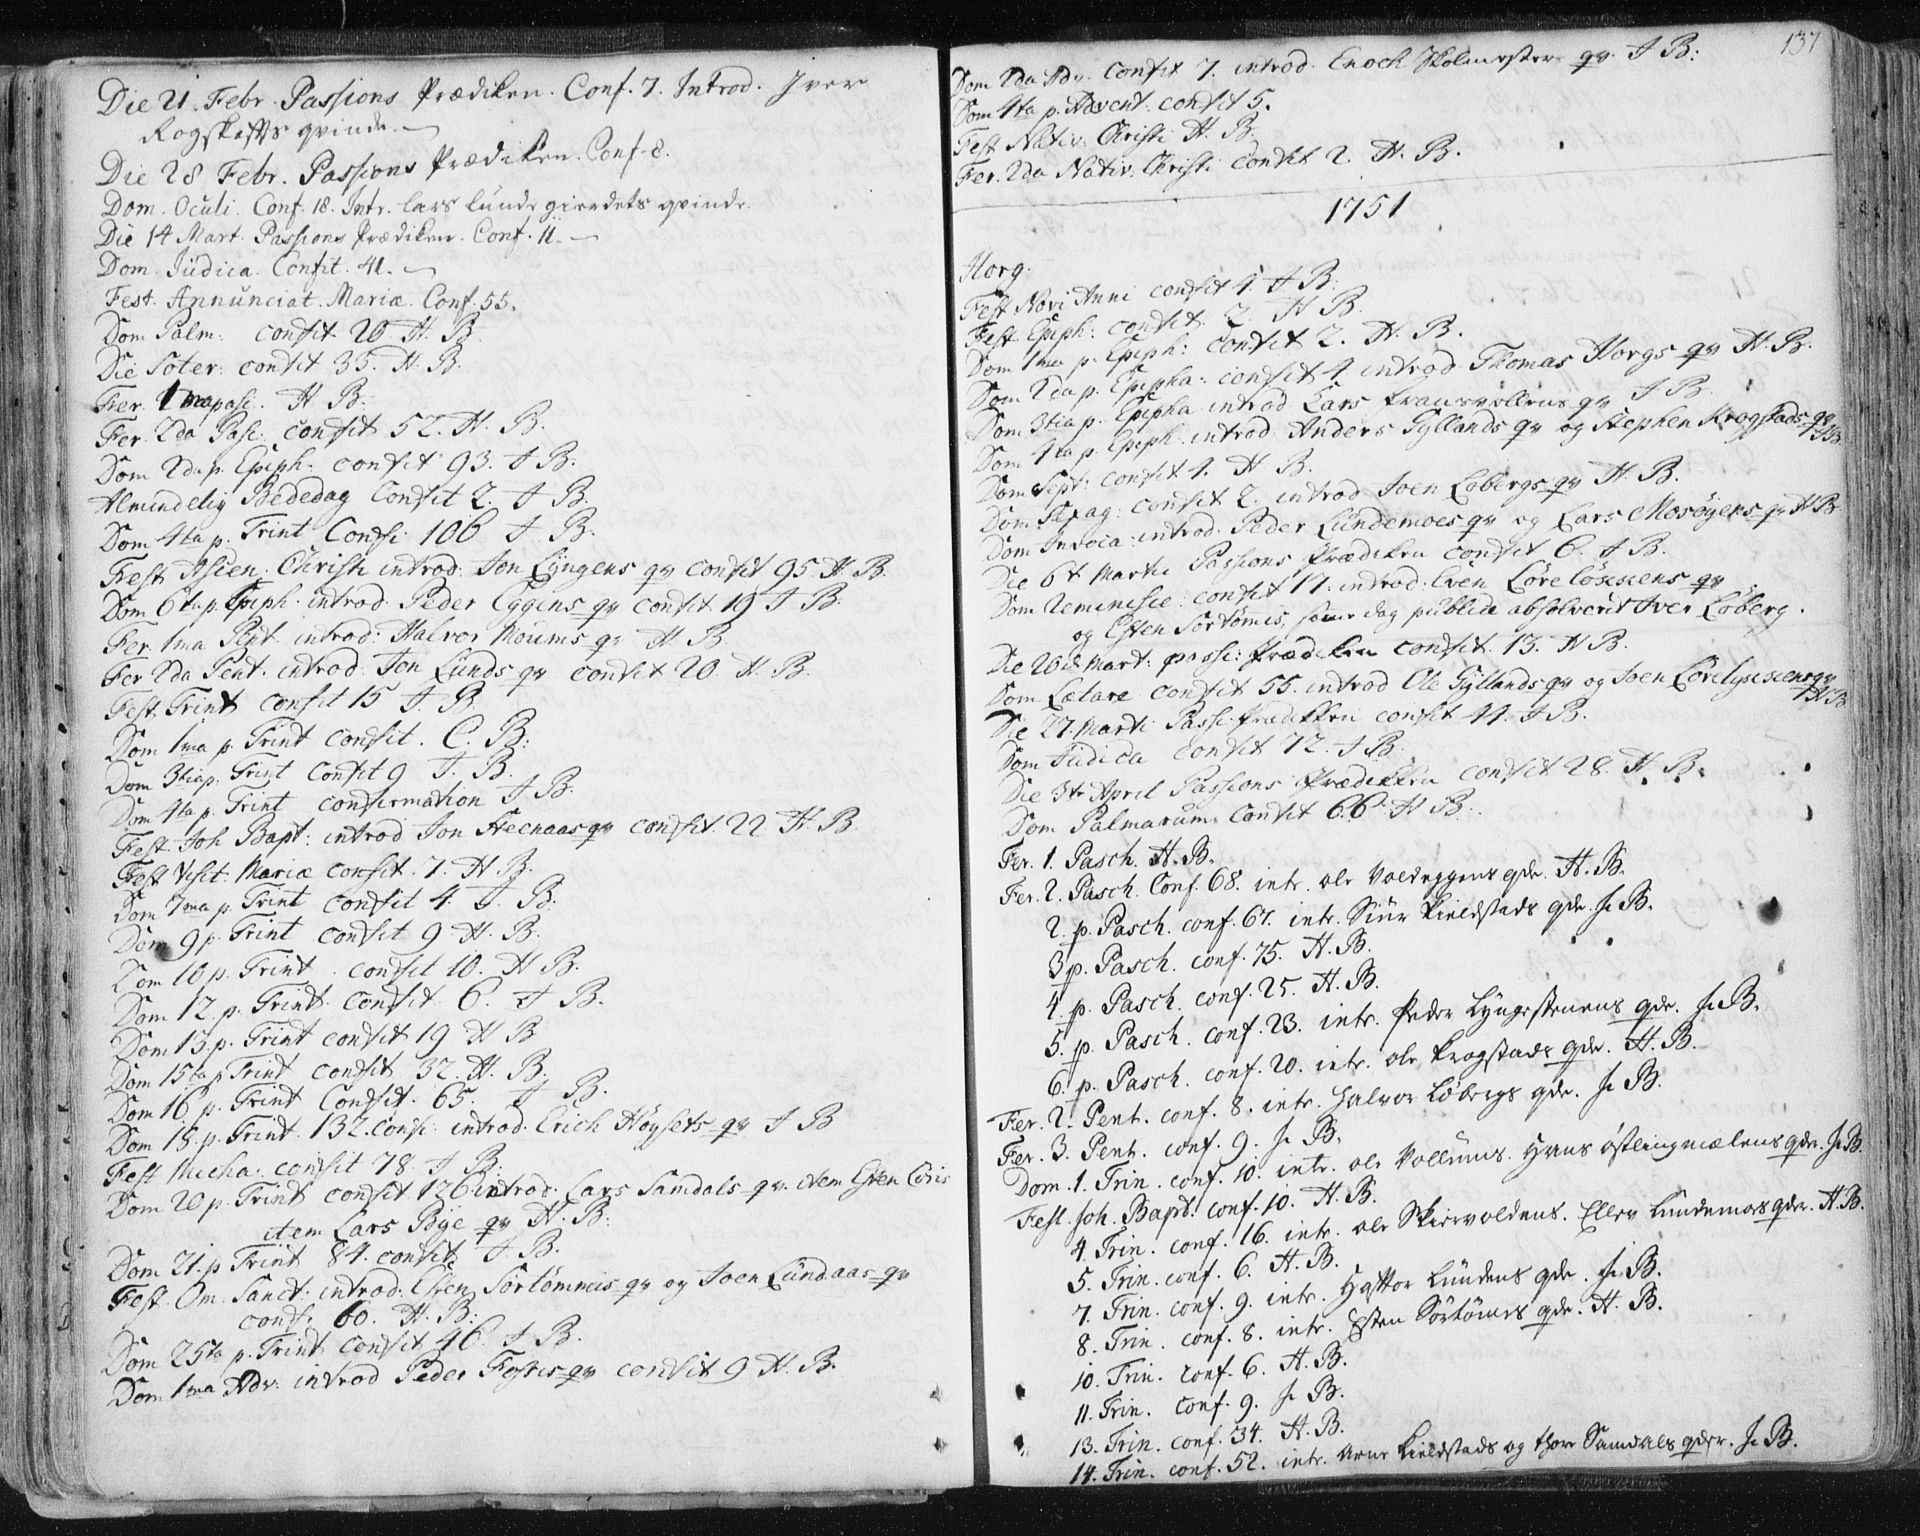 Die 21. Febr. Passions Prædiken. Conf. 7. Introd. Iver
Rogskafts qvinde.
Die 28 Febr. Passions Prædiken. Conf. 8.
Dom. Oculi. Conf. 18. Intr. Lars Lunde gierdets qvinde.
Die 14 Mart. Passions Prædiken. Conf. 11.
Dom. Judica. Confit. 41.
Fest. Annunciat. Mariæ. Conf. 55.
Dom Palm: confit 20 H. B.
Die Soter: confit 35. H. B.
Fer. 1ma pasc. H B.
Fer. 2da Pasc: confit 52. H. B.
Dom 2da p. Epiph: confit 93. J B.
Almindelig Bededag Confit 2. J B.
Dom 4ta p. Trint Confi: 106 J B.
Fest Ascen. Christi introd. Jon Lyngens qv confit 95 H B.
Dom 6ta p. Epiph. introd. Peder Eggens qv confit 19 J B.
Fer 1ma Pent. introd: Halvor Moums qv H B
Fer 2da Pent. introd. Jon Lunds qv confit 20. H. B.
Fest Trint confit 15 J B.
Dom 1ma p. Trint confit. C. B:
Dom 3tia p. Trint Confit 9 J. B.
Dom 4ta p. Trint confirmation J B.
Fest. Joh Bapt: introd Jon Steenaas qv confit. 22 H. B.
Fest Visit: Mariæ confit. 7. H B.
Dom 7ma p. Trint confit 4. J. B.
Dom 9 p. Trint confit 9 H. B.
Dom 10 p. Trint confit 10. H B.
Dom 12. p. Trint confit 6. J B.
Dom 13. p. Trint confit 19 H B
Dom 15ta p Trint confit 32. H. B.
Dom 16 p. Trint Confit. 65. J B.
Dom 18. p. Trint. 132. Confi: introd. Erich Høysets qv J B
Fest Micha: confit 78. J B.
Dom 20 p. Trint confit 126 introd. Lars Samdals qv. item Esten Loris
item Lars Bye qv H. B:
Dom 21. p Trint 84. confit J B.
Fest. Om. Sanct: introd: Esten Sørtømmes qv og Joen Lundaas qv
conf. 60. H. B:
Dom 25ta p. Trint confit 46 J B.
Dom 1ma Adv: introd Peder Fosses qv confit 9 H. B.
137
Dom 2da Adv. Confit 7. introd. Enoch Skolmesters qv. J B:
Dom 4ta p. Advent. confit 5.
Fest Nativ. Christi H. B.
Fer. 2da Nativ. Christi confit 2. H. B.
1751
Horg.
Fest Novi Anni confit 4. J B.
Fest Epiph: confit. 2. H B.
Dom 1ma p. Epiph: confit 2. H. B.
Dom 2da p. Epipha: confit 4 introd Thomas Horgs qv H. B.
Dom 3tia p. Epipha introd Lars Fransvollens qv J B.
Dom 4ta p. Epiph. introd. Anders Gyllands qv og Stephen Krogstads qv
J B
Dom Sept: confit 4. H B.
Dom Sexag: confit 2. introd Joen Lobergs qv H. B.
Dom Invoca: introd. Peder Lundemoes qv og Lars Mosøyens qv H B
Die 6t Martii Passions Prædiken confit 6. J B.
Dom Reminisce: confit 17. introd. Even Løreløkkens qv
og Esten Sørtømes, same dag publice absolverit Iver Løberg.
Die 20de Mart: passi: Prædiken confit. 13. H B.
Dom Lætare confit 55. introd Ole Gyllands qv og Joen Lørelyckens qv
H B
Die 27. Marti Passi Prædikken confit 44. J B.
Dom Judica confit 72. J B.
Die 3te April Passions Prædikken confit 28. H. B.
Dom Palmarum. Confit 66. H B.
Fer. 1. Pasch. H. B.
Fer. 2. Pasch. Conf. 68. intr. Ole Voleggens qde. H. B.
2. p. Pasch. conf. 67. intr. Siur Kieldstads qde. J. B.
3 p. Pasch. conf. 75. H. B.
4. p. Pasch. conf. 25. H. B.
5. p. Pasch. conf. 23. intr. Peder Lyngstenens qde. J. B.
6. p. Pasch. conf. 20. intr. Ole Krogstads qde. H. B.
Fer. 2. Pent. conf. 8. intr. Halvor Løbergs qde. J. B.
Fer. 3. Pent. conf. 9. J. B.
Dom. 1. Trin. conf. 10. intr. Ole Vollums. Hans Østlingmælens qder. J. B.
Fest. Joh. Bapt. conf. 10. H. B.
4. Trin. conf. 16. intr. Ole Skiervoldens. Ellev Lundemoes qder. H. B.
5. Trin. conf. 6. H. B.
7. Trin. conf. 9. intr. Hattor Lundens qde. J. B.
8. Trin. conf. 8. intr. Esten Sørtømes qde. H. B.
10. Trin. conf. 6. H. B.
11. Trin. conf. 9. J. B.
13. Trin. conf. 34. H. B.
14. Trin. conf. 52. intr. Arne Kieldstads og Thore Samdals qder. J. B.